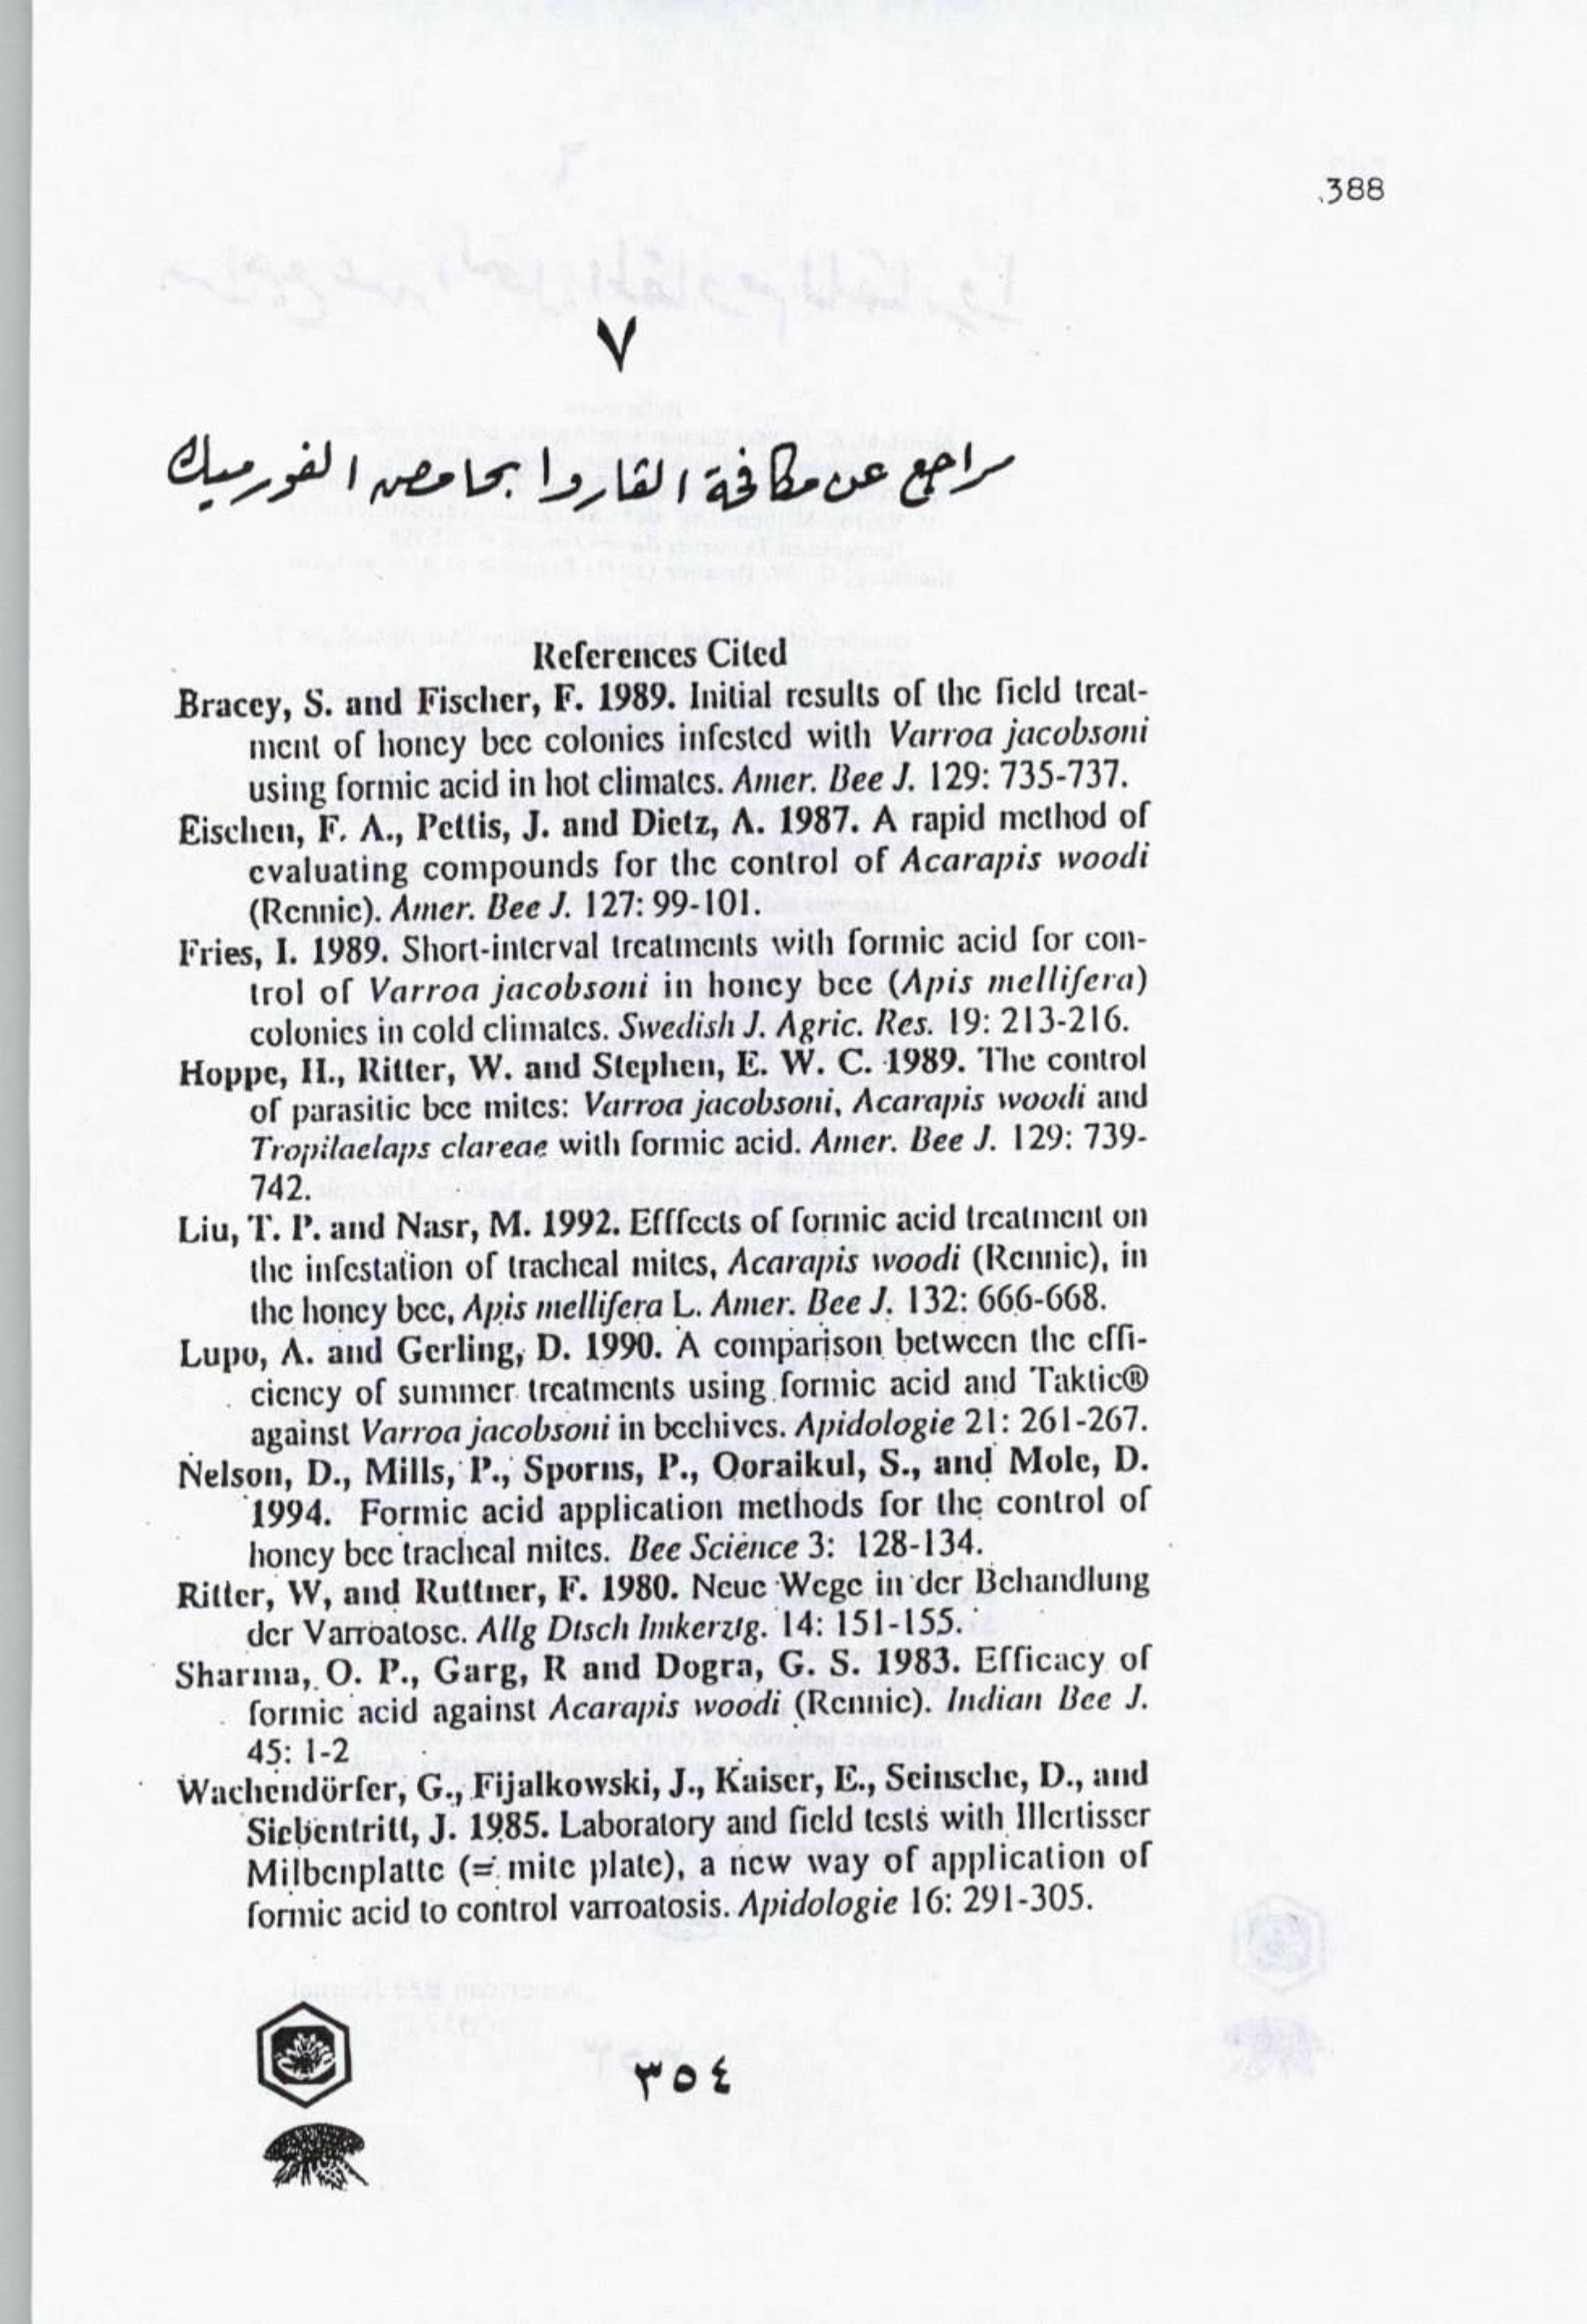 388
٧
مراجع عن مكافحة القاروا بحامض الفورميك
References Cited
Bracey, S. and Fischer, F. 1989. Initial results of the field treat-
ment of honey bee colonies infested with Varroa jacobsoni
using formic acid in hot climates. Amer. Bee J. 129: 735-737.
Eischen, F. A., Pettis, J. and Dietz, A. 1987. A rapid method of
evaluating compounds for the control of Acarapis woodi
(Rennie). Amer. Bee J. 127: 99-101.
Fries, I. 1989. Short-interval treatments with formic acid for con-
trol of Varroa jacobsoni in honey bee (Apis mellifera)
colonies in cold climates. Swedish J. Agric. Res. 19: 213-216.
Hoppe, H., Ritter, W. and Stephen, E. W. C. 1989. The control
of parasitic bee mites: Varroa jacobsoni, Acarapis woodi and
Tropilaelaps clareae with formic acid. Amer. Bee J. 129: 739-
742.
Liu, T. P. and Nasr, M. 1992. Efffects of formic acid treatment on
the infestation of tracheal mites, Acarapis woodi (Rennie), in
the honey bee, Apis mellifera L. Amer. Bee J. 132: 666-668.
Lupo, A. and Gerling, D. 1990. A comparison between the effi-
ciency of summer treatments using formic acid and Taktic®
against Varroa jacobsoni in beehives. Apidologie 21: 261-267.
Nelson, D., Mills, P., Sporns, P., Ooraikul, S., and Mole, D.
1994. Formic acid application methods for the control of
honey bee tracheal mites. Bee Science 3: 128-134.
Ritter, W, and Ruttner, F. 1980. Neue Wege in der Behandlung
der Varroatose. Allg Dtsch Imkerztg. 14: 151-155.
Sharma, O. P., Garg, R and Dogra, G. S. 1983. Efficacy of
formic acid against Acarapis woodi (Rennie). Indian Bee J.
45: 1-2
Wachendörfer, G., Fijalkowski, J., Kaiser, E., Seinsche, D., and
Siebentritt, J. 1985. Laboratory and field tests with Illertisser
Milbenplatte (= mite plate), a new way of application of
formic acid to control varroatosis. Apidologie 16: 291-305.
٣٥٤